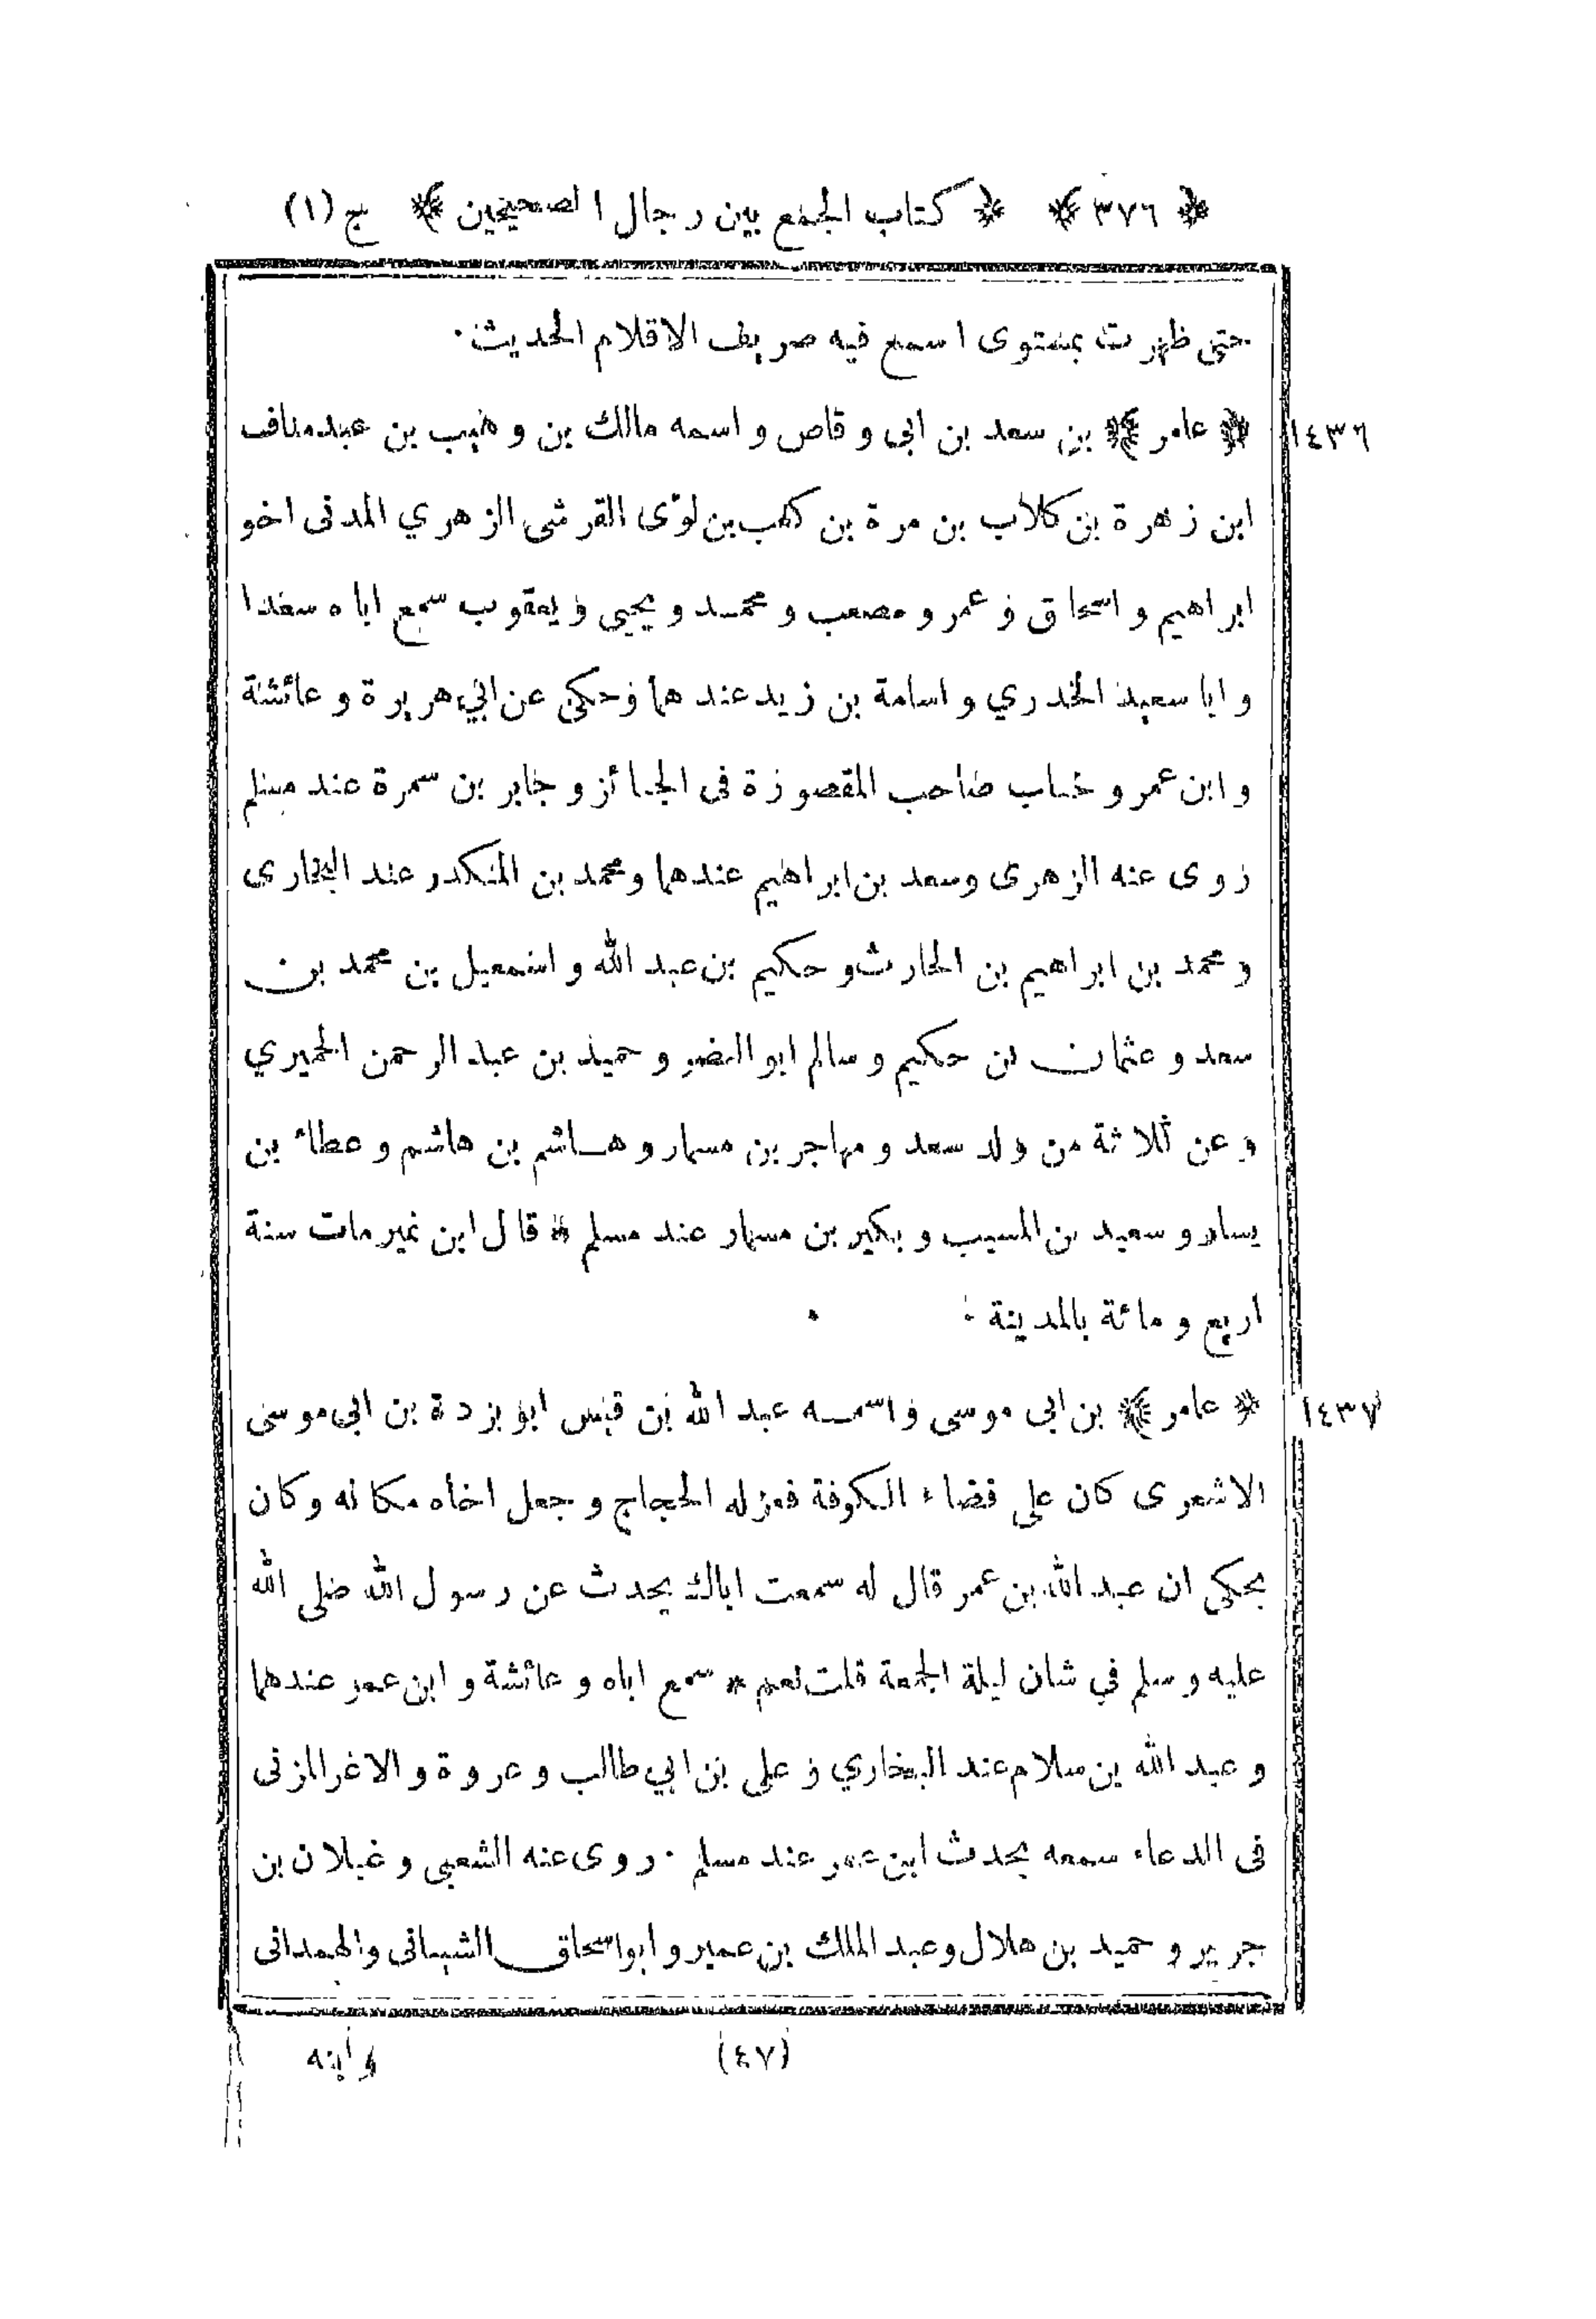 ﴿ ٣٧٦ ﴾ ﴿ كتاب الجمع بين رجال الصحيحين ﴾ ج (١)
حتى ظهرت بمستوى اسمع فيه صريف الاقلام الحديث.
١٤٣٦ ﴿ عامر ﴾ بن سعد بن ابى وقاص واسمه مالك بن وهيب بن عبدمناف
ابن زهرة بن كلاب بن مرة بن كعب بن لؤى القرشى الزهري المدنى اخو
ابراهيم واسحاق وعمر ومصعب ومحمد ويحيى ويعقوب سمع اباه سعدا
وابا سعيد الخدري واسامة بن زيد عندهما وحكى عن ابي هريرة وعائشة
وابن عمر وخباب صاحب المقصورة فى الجنائز وجابر بن سمرة عند مسلم
روى عنه الزهرى وسعد بن ابراهيم عندهما ومحمد بن المنكدر عند البخارى
ومحمد بن ابراهيم بن الحارث وحكيم بن عبد الله واسمعيل بن محمد بن
سعد وعثمان بن حكيم وسالم ابو النضر وحميد بن عبد الرحمن الحميري
وعن ثلاثة من ولد سعد ومهاجر بن مسمار وهاشم بن هاشم وعطاء بن
يسار وسعيد بن المسيب وبكير بن مسمار عند مسلم * قال ابن نمير مات سنة
اربع ومائة بالمدينة .
١٤٣٧ ﴿ عامر ﴾ بن ابى موسى واسمه عبد الله بن قيس ابو بردة بن ابى موسى
الاشعرى كان على قضاء الكوفة فعزله الحجاج وجعل اخاه مكانه وكان
يحكى ان عبد الله بن عمر قال له سمعت اباك يحدث عن رسول الله صلى الله
عليه وسلم في شان ليلة الجمعة قلت نعم * سمع اباه وعائشة وابن عمر عندهما
وعبد الله بن سلام عند البخاري وعلى بن ابي طالب وعروة والاغر المزنى
فى الدعاء سمعه يحدث ابن عمر عند مسلم . روى عنه الشعبى وغيلان بن
جرير وحميد بن هلال وعبد الملك بن عمير وابو اسحاق الشيبانى والهمدانى
(٤٧) وابنه